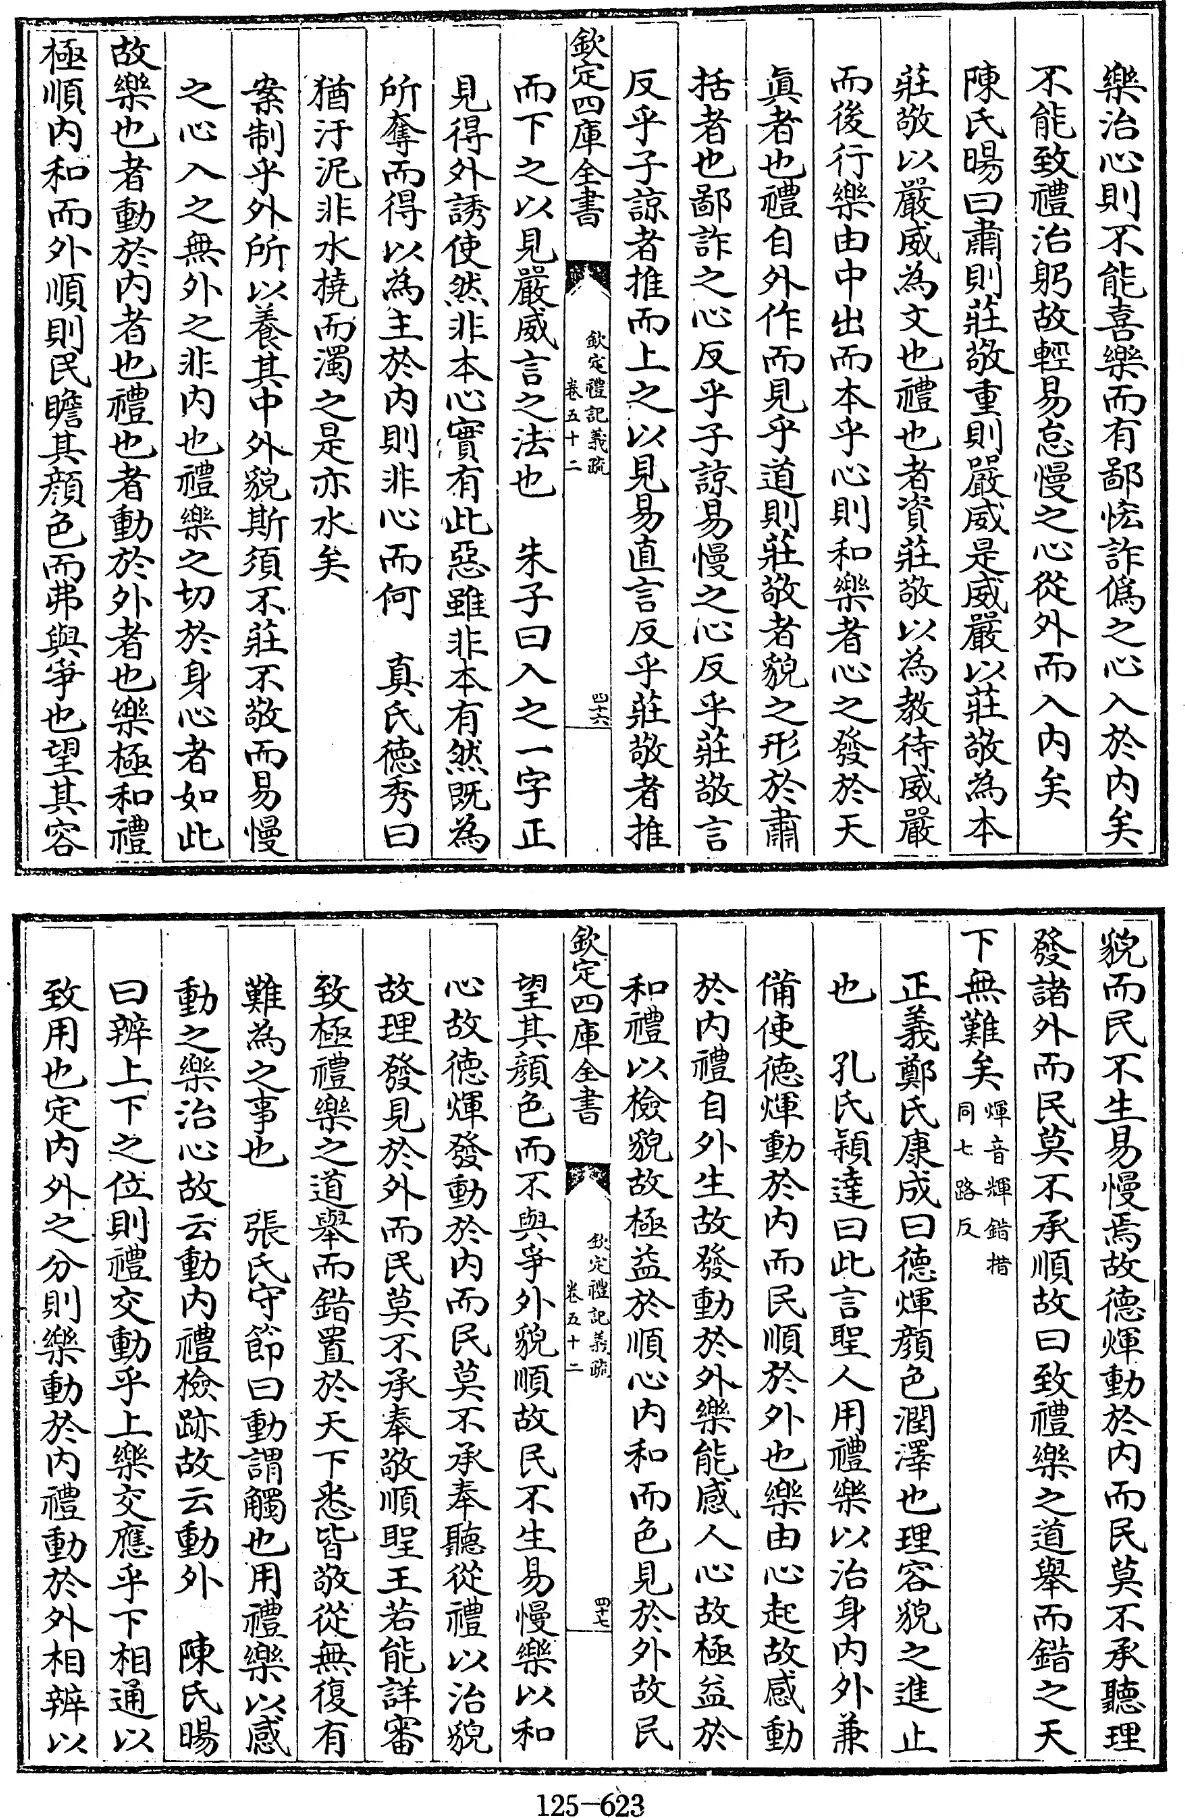 樂治心則不能喜樂而有鄙怯詐僞之心入於内矣
不能致禮治躬故輕易怠慢之心從外而入内矣
陳氏暘曰肅則莊敬重則嚴威是威嚴以莊敬為本
莊敬以嚴威為文也禮也者資莊敬以為教待威嚴
而後行樂由中出而本乎心則和樂者心之發於天
真者也禮自外作而見乎道則莊敬者貌之形於肅
括者也鄙詐之心反乎子諒易慢之心反乎莊敬言
反乎子諒者推而上之以見易直言反乎莊敬者推
欽定四庫全書
欽定禮記義疏
卷五十二
四十六
而下之以見嚴威言之法也　朱子曰入之一字正
見得外誘使然非本心實有此惡雖非本有然既為
所奪而得以為主於内則非心而何　真氏德秀曰
猶汙泥非水撓而濁之是亦水矣
案制乎外所以養其中外貌斯須不莊不敬而易慢
之心入之無外之非内也禮樂之切於身心者如此
故樂也者動於内者也禮也者動於外者也樂極和禮
極順内和而外順則民瞻其顔色而弗與爭也望其容
貌而民不生易慢焉故德煇動於内而民莫不承聽理
發諸外而民莫不承順故曰致禮樂之道舉而錯之天
下無難矣煇音輝錯措
同七路反
正義鄭氏康成曰德煇顔色潤澤也理容貌之進止
也　孔氏穎達曰此言聖人用禮樂以治身内外兼
備使德煇動於内而民順於外也樂由心起故感動
於内禮自外生故發動於外樂能感人心故極益於
和禮以檢貌故極益於順心内和而色見於外故民
欽定四庫全書
欽定禮記義疏
卷五十二
四十七
望其顔色而不與爭外貌順故民不生易慢樂以和
心故德煇發動於内而民莫不承奉聽從禮以治貌
故理發見於外而民莫不承奉敬順聖王若能詳審
致極禮樂之道舉而錯置於天下悉皆敬從無復有
難為之事也　張氏守節曰動謂觸也用禮樂以感
動之樂治心故云動内禮檢跡故云動外　陳氏暘
曰辨上下之位則禮交動乎上樂交應乎下相通以
致用也定内外之分則樂動於内禮動於外相辨以
125-623